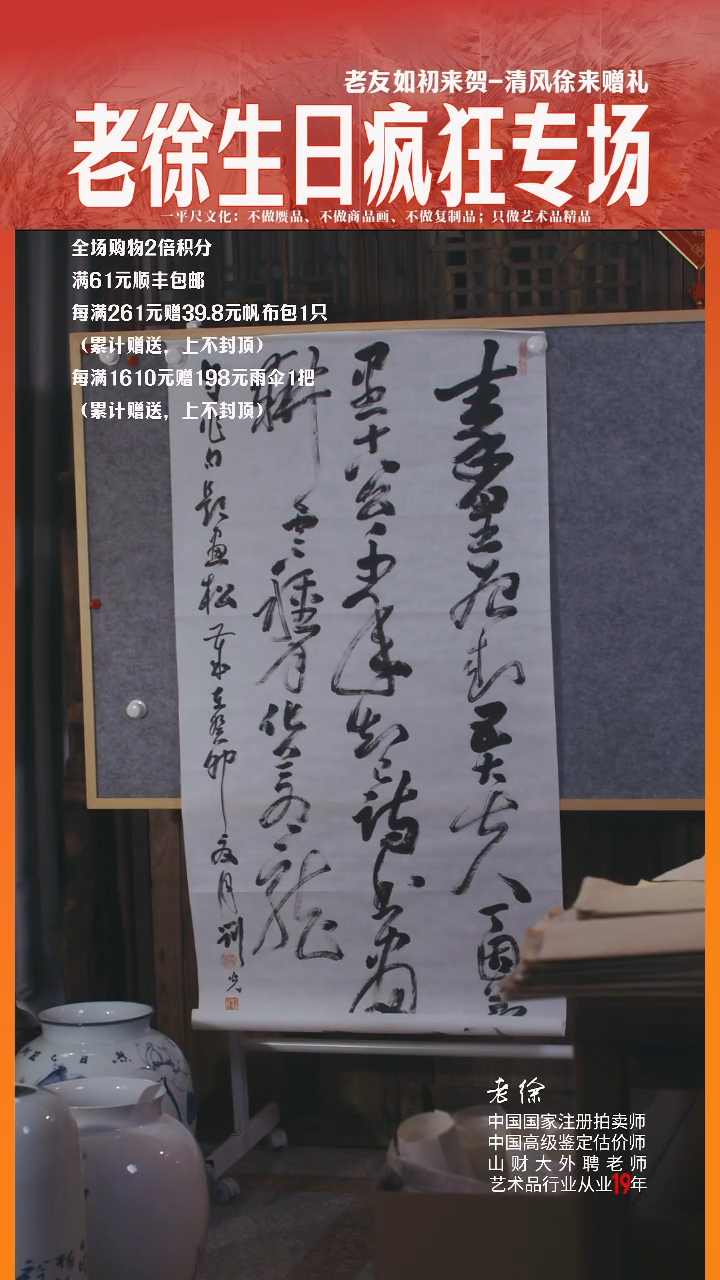 老友如初来贺-清风徐来赠礼
老徐生日疯狂专场
一平尺文化：不做赝品、不做商品画、不做复制品；只做艺术品精品
全场购物2倍积分
满61元顺丰包邮
每满261元赠39.8元帆布包1只
（累计赠送，上不封顶）
每满1610元赠198元雨伞1把
（累计赠送，上不封顶）
秦皇封五大夫丁固
是十八公诗书画
化为龙
自作句题画松在癸卯夏月
老徐
中国国家注册拍卖师
中国高级鉴定估价师
山财大外聘老师
艺术品行业从业19年